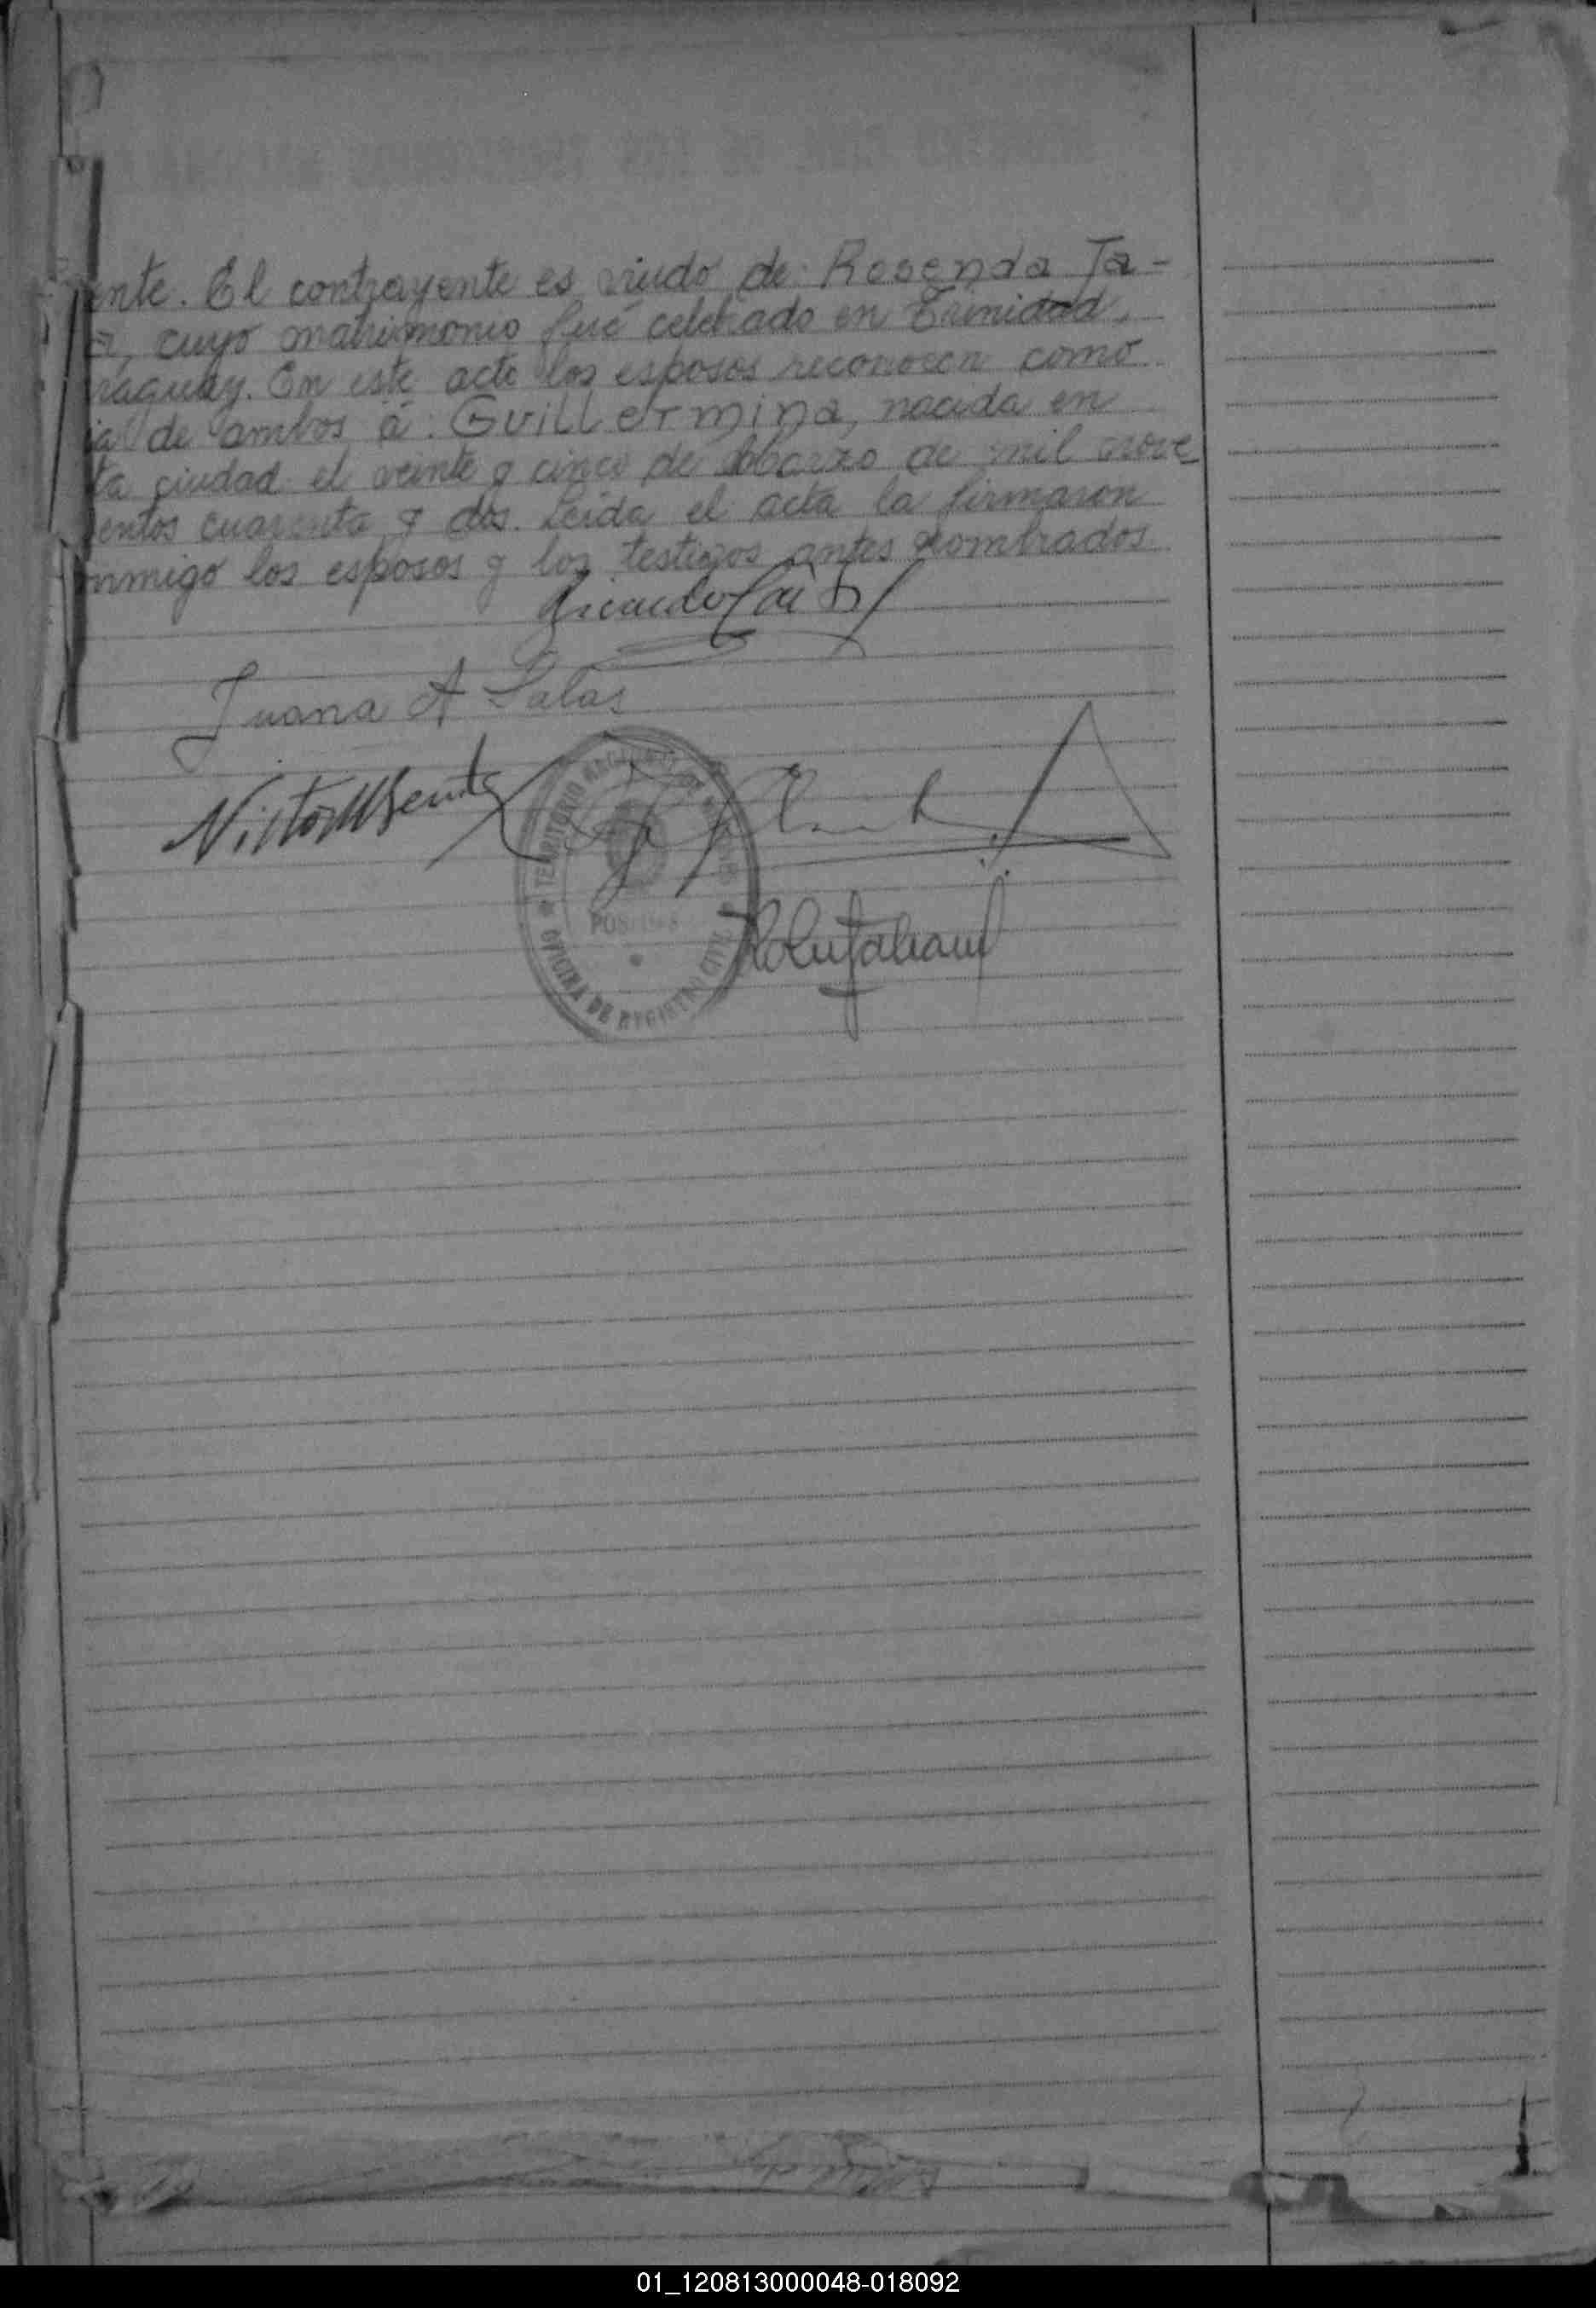 nte. El contrayente es viudo de Rosenda Ta-
cuyo matrimonio fué celebrado en Trinidad,
raguay. En este acto los esposos reconocen como
ja de ambos á: Guillermina, nacida en
ta ciudad el veinte y cinco de Marzo de mil nove
entos cuarenta y dos. Leida el acta la firmaron
onmigo los esposos y los testigos antes nombrados
Ricardo
Juana A Salas
TERRITORIO NACIONAL DE MISIONES
POSADAS
OFICINA DE REGISTRO CIVIL
01_120813000048-018092